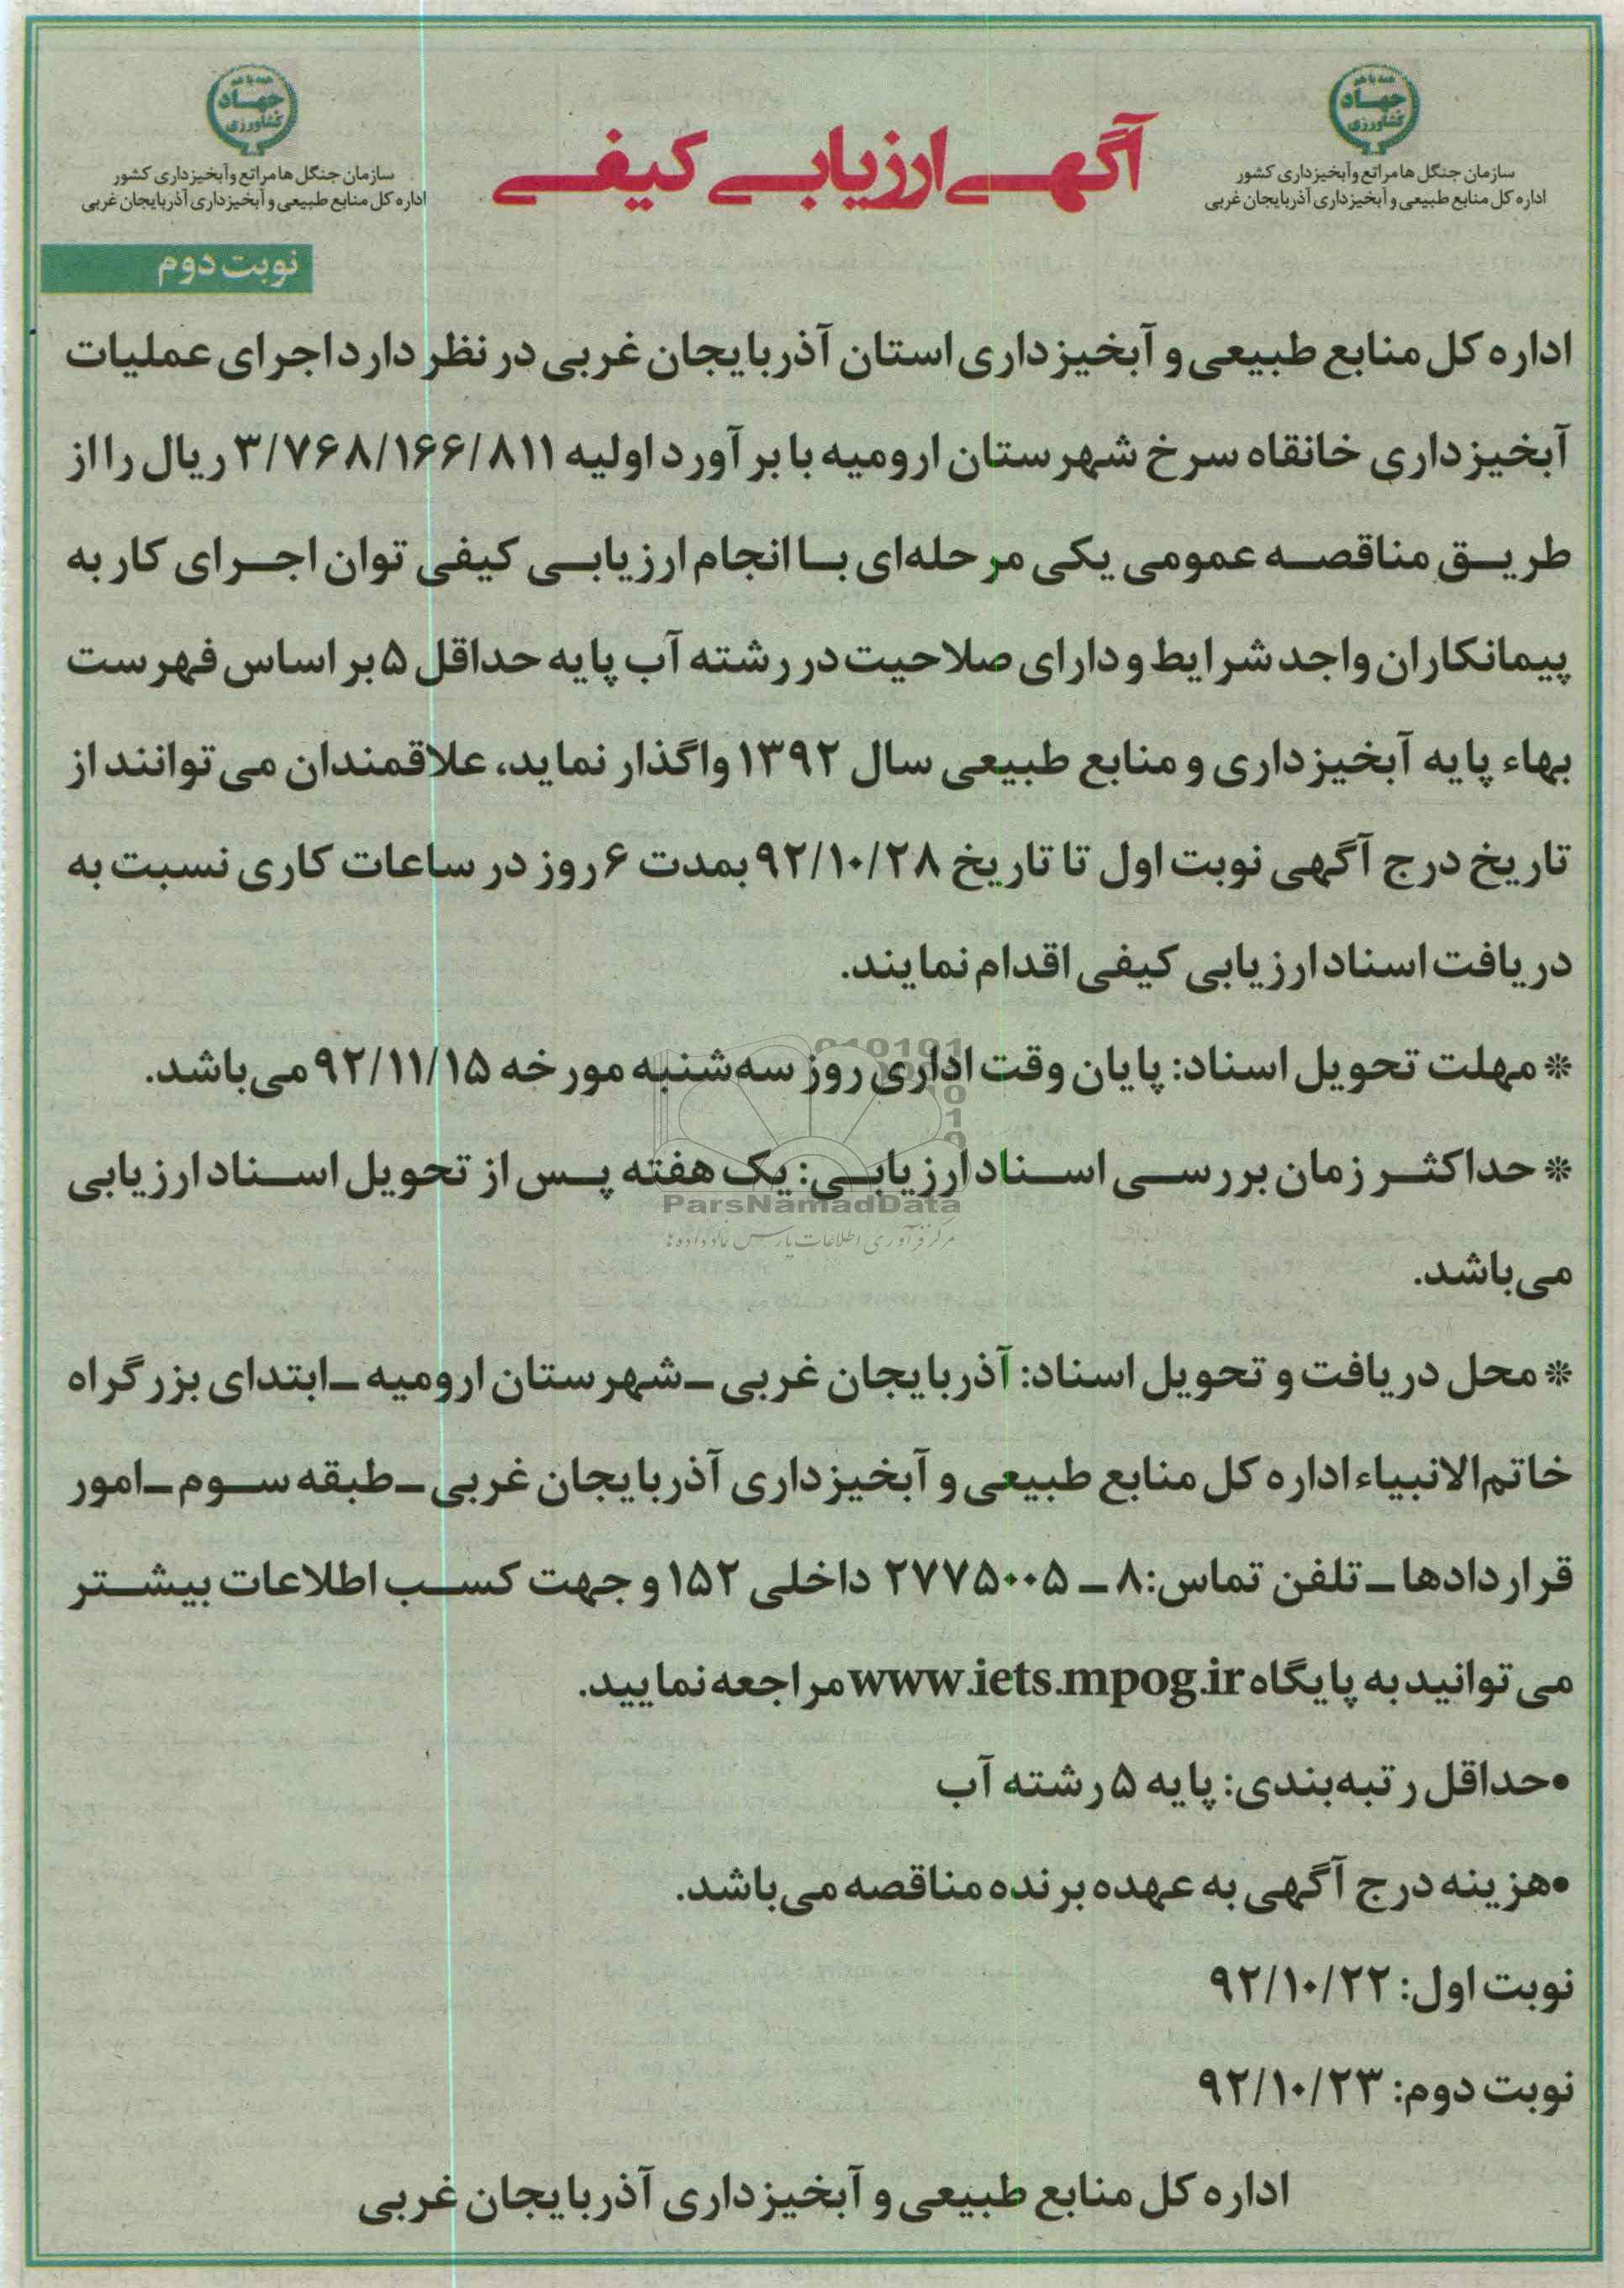 همه با هم
جهاد
کشاورزی
سازمان جنگل ها مراتع و آبخیزداری کشور
اداره کل منابع طبیعی و آبخیزداری آذربایجان غربی
آگهی ارزیابی کیفی
همه با هم
جهاد
کشاورزی
سازمان جنگل ها مراتع و آبخیزداری کشور
اداره کل منابع طبیعی و آبخیزداری آذربایجان غربی
نوبت دوم
اداره کل منابع طبیعی و آبخیزداری استان آذربایجان غربی در نظر دارد اجرای عملیات
آبخیزداری خانقاه سرخ شهرستان ارومیه با برآورد اولیه ۳/۷۶۸/۱۶۶/۸۱۱ ریال را از
طریق مناقصه عمومی یکی مرحله‌ای با انجام ارزیابی کیفی توان اجرای کار به
پیمانکاران واجد شرایط و دارای صلاحیت در رشته آب پایه حداقل ۵ بر اساس فهرست
بهاء پایه آبخیزداری و منابع طبیعی سال ۱۳۹۲ واگذار نماید، علاقمندان می توانند از
تاریخ درج آگهی نوبت اول تا تاریخ ۹۲/۱۰/۲۸ بمدت ۶ روز در ساعات کاری نسبت به
دریافت اسناد ارزیابی کیفی اقدام نمایند.
* مهلت تحویل اسناد: پایان وقت اداری روز سه‌شنبه مورخه ۹۲/۱۱/۱۵ می‌باشد.
* حداکثر زمان بررسی اسناد ارزیابی: یک هفته پس از تحویل اسناد ارزیابی
می‌باشد.
* محل دریافت و تحویل اسناد: آذربایجان غربی ـ شهرستان ارومیه ـ ابتدای بزرگراه
خاتم‌الانبیاء اداره کل منابع طبیعی و آبخیزداری آذربایجان غربی ـ طبقه سوم ـ امور
قراردادها ـ تلفن تماس: ۸ ـ ۲۷۷۵۰۰۵ داخلی ۱۵۲ و جهت کسب اطلاعات بیشتر
می توانید به پایگاه www.iets.mpog.ir مراجعه نمایید.
•حداقل رتبه‌بندی: پایه ۵ رشته آب
•هزینه درج آگهی به عهده برنده مناقصه می‌باشد.
نوبت اول: ۹۲/۱۰/۲۲
نوبت دوم: ۹۲/۱۰/۲۳
اداره کل منابع طبیعی و آبخیزداری آذربایجان غربی
ParsNamadData
مرکز فرآوری اطلاعات پارس نماد داده ها